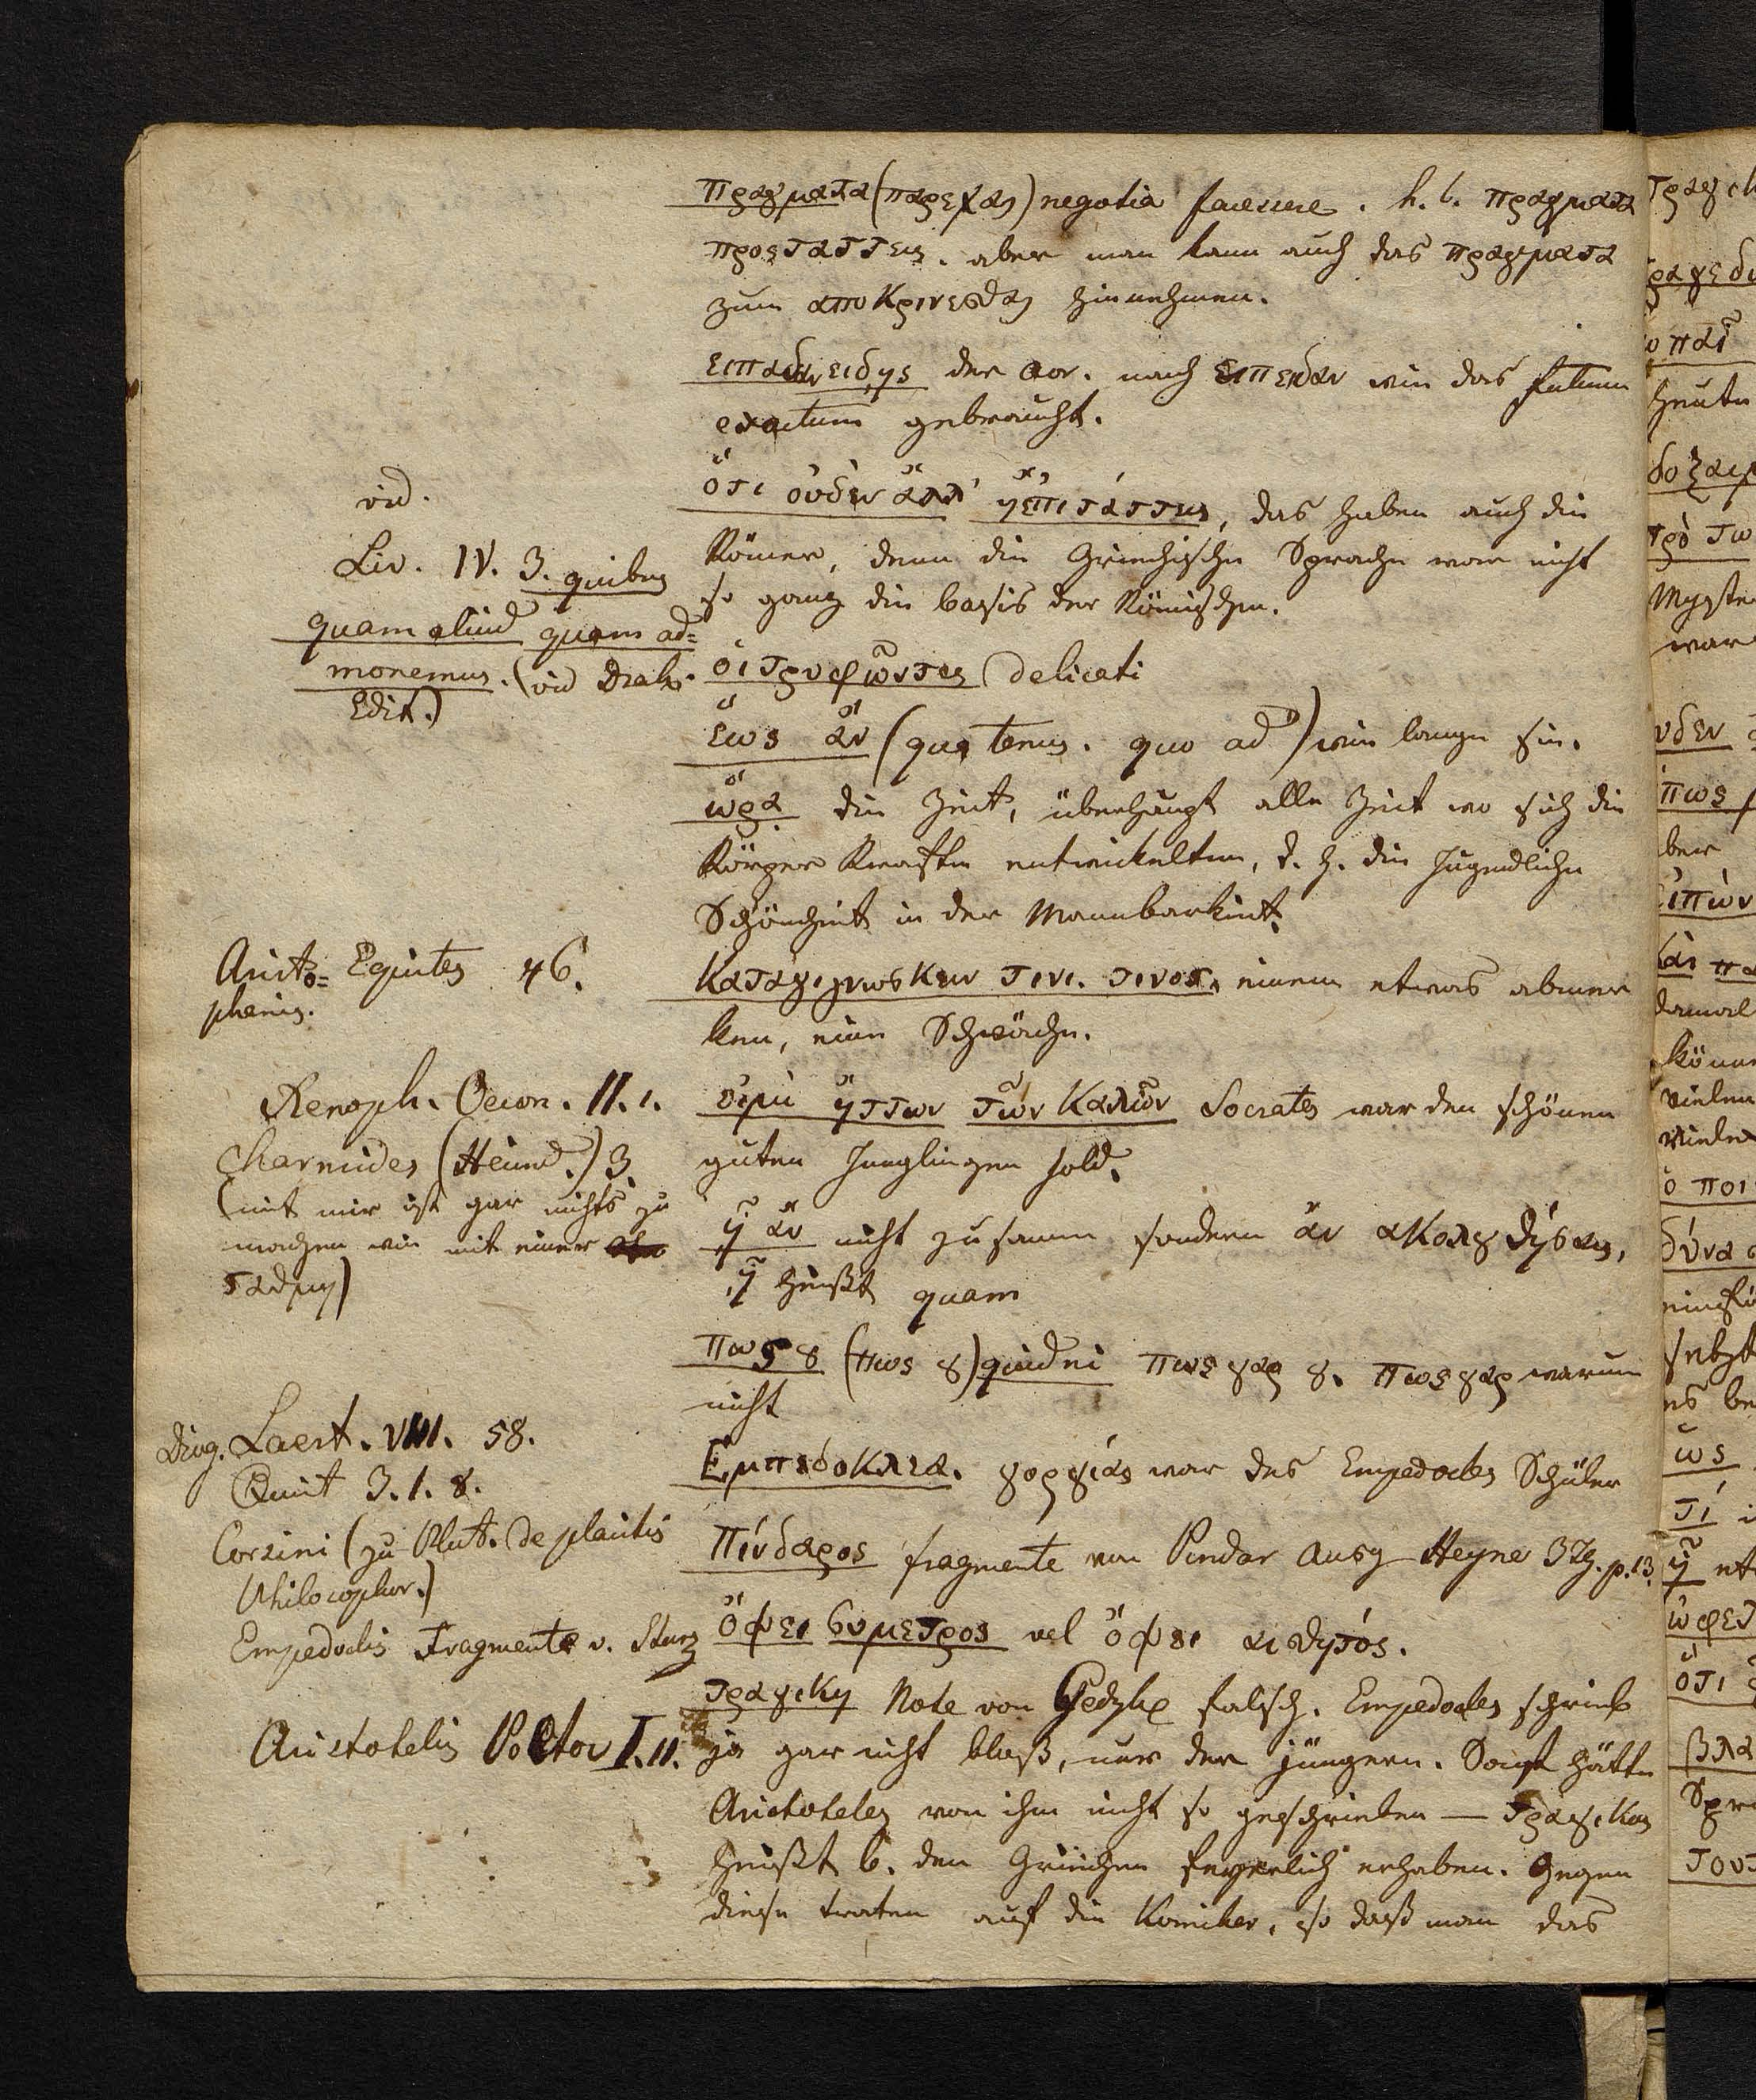 πραγματα (παρεχειν) negotia facessere. h. l. πραγματα
προςταττεις. aber man kann auch das πραγματα
zum αποκρινεσθαι hinnehmen.
ειπειδαν ειδης der aor. nach ειπειδαν wie das futurum
exactum gebraucht.
vid.
Liv. IV. 3. quibus
quam aliud quam ad=
monemus. (vid Drak.
Edit.)
ὅτι ὀυδὲν ἄλλ' ἢ ἐπιτάττεις, das haben auch die
Römer, denn die Griechische Sprache war nicht
so ganz die basis der Römischen.
ὁι τρυφῶντες delicati
ἕως ἄν (qua tenus. quo ad) wie lange sie.
ὥρα die Zeit, überhaupt alle Zeit wo sich die
Körper Kraefte entwickelten, d. h. die Jugendliche
Schönheit in der Mannbarkeit.
Aristo= Equites 46.
phanis.
καταγιγνωσκειν τινι. τινος. einem etwas abmer
ken, eine Schwäche.
Xenoph. Oecon. II. 1.
Charmides (Heind.) 3.
(mit mir ist gar nichts zu
machen wie mit einer
σταθμη)
ὅιμὶ ἥττων τῶν καλῶν Socrates war den schönen
guten Junglingen hold.
ἢ ἄν nicht zusamm sondern ἄν ακολουθήσαις,
ἢ heißt quam
πως ου (πως ου) quidni πως γαρ ου. πως γαρ warum
nicht
Diog. Laert. VIII. 58.
Quint 3. 1. 8.
Corsini (zu Plut. de placitis
Philosophor.)
Empedoclis Fragmente v. Sturz
Εμπεδοκλεα. γοργίας war des Empedocles Schüler
Πίνδαρος fragmente von Pindar Ausg Heyne 3 Th. p. 13.
ὄψει συμετρος vel ὄψει αισθητός.
Aristotelis Poetov I. 11.
τραγικη Note von Gedyke falsch. Empedocles schrieb
ja gar nicht bloß, nur der jüngern. Sonst hätte
Aristoteles von ihm nicht so geschrieben — τραγικος
heißt b. den Griechen feyerlich erhaben. Gegen
diese traten auf die Komiker, so daß man das